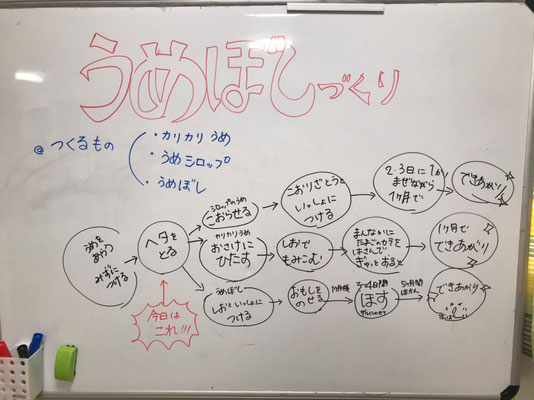 うめぼしづくり
◎ つくるもの
・カリカリうめ
・うめシロップ
・うめぼし
うめを
あらう
みずに
つける
ヘタを
とる
今日は
これ!!!
シロップのうめ
こおらせる
こおりざとうと
いっしょに
つける
2・3日に1かい
まぜながら
1ヶ月で
できあがり
カリカリうめ
おさけに
ひたす
しおで
もみこむ
まんなかに
たまごのカラを
はさんで
ぎゅっとおると
1ヶ月で
できあがり
うめぼし
しおといっしょに
つける
おもしを
のせる
1ヶ月後
3〜4日間
ほす
5ヶ月間
ほかん
できあがり